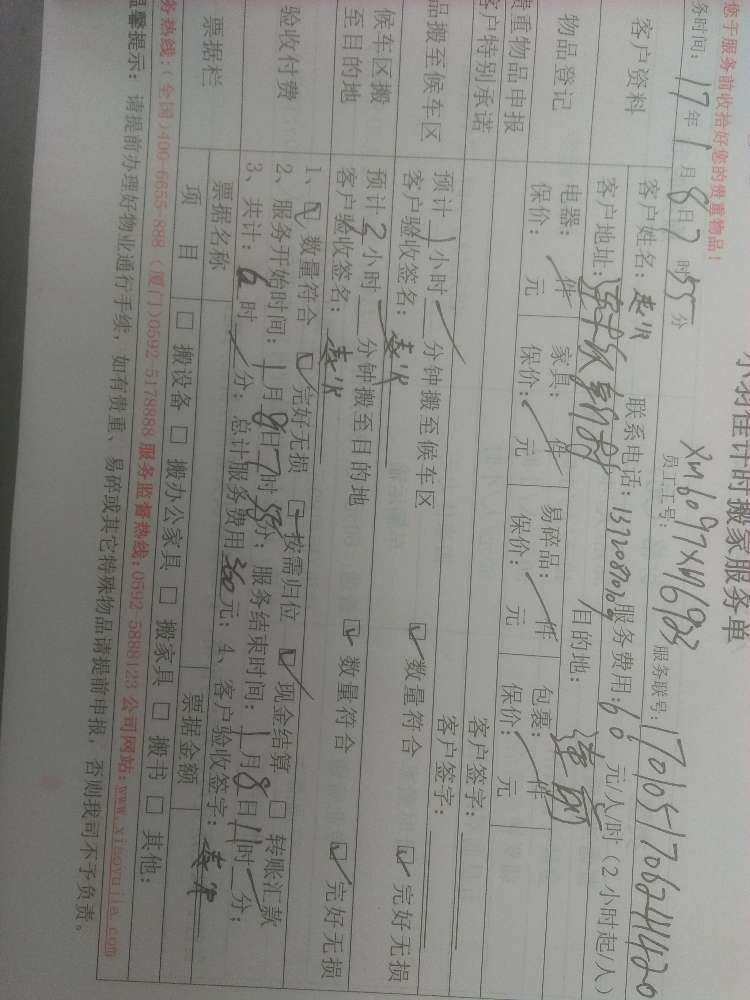 小羽佳计时搬家服务单
您于服务前收拾好您的贵重物品!
员工工号: 服务联号:
务时间: 17年1月8日7时55分
客户资料
客户姓名: 联系电话: 服务费用: 60元/人/时(2小时起/人)
客户地址: 目的地:
物品登记
电器: 件 家具: 件 易碎品: 件 包裹: 件
保价: 元 保价: 元 保价: 元 保价: 元
贵重物品申报 客户签字:
客户特别承诺 客户签字:
品搬至候车区
预计1小时 分钟搬至候车区 ☑数量符合 ☑完好无损
客户验收签名:
候车区搬
至目的地
预计2小时 分钟搬至目的地 ☑数量符合 ☑完好无损
客户验收签名:
验收付费
1、☑数量符合 ☑完好无损 ☑按需归位 ☑现金结算 □转账汇款
2、服务开始时间: 1月8日7时55分; 服务结束时间: 1月8日11时 分;
3、共计: 6时 分; 总计服务费用360元; 4、客户验收签字:
票据栏
票据名称 票据金额
项目 □搬设备 □搬办公家具 □搬家具 □搬书 □其他:
务热线:(全国)400-6655-888 (厦门)0592-5178888 服务监督热线:0592-5888123 公司网站:www.xiaoyujia.com
温馨提示: 请提前办理好物业通行手续, 如有贵重、易碎或其它特殊物品请提前申报, 否则我司不予负责。